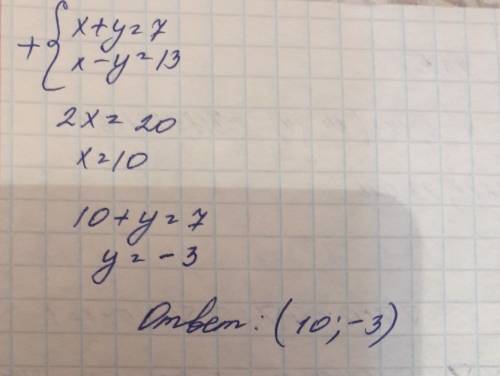 + { x+y=7
x-y=13
2x=20
x=10
10+y=7
y=-3
Ответ: (10;-3)